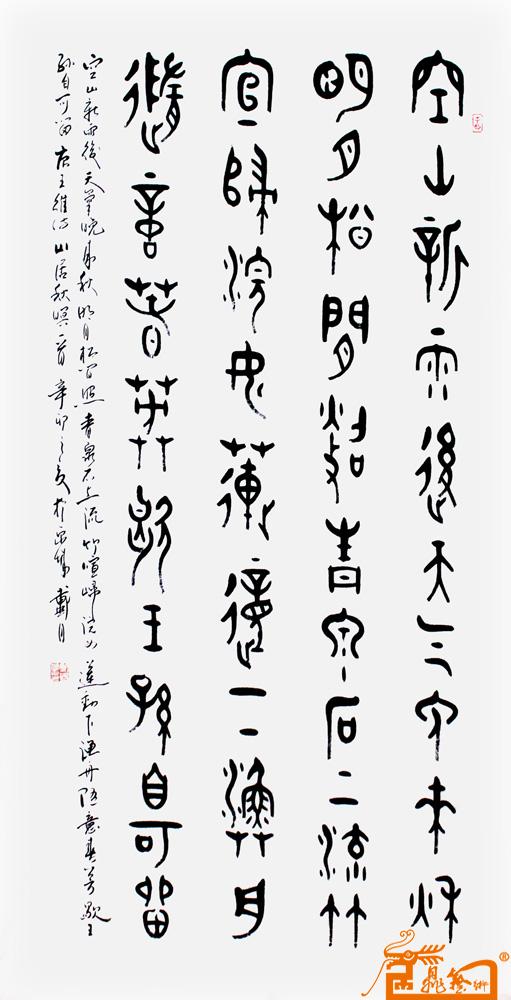 空山新雨後天气晚来秋
明月松間照青泉石上流竹
宣歸浣女蓮動下漁舟
隨意春芳歇王孫自可留
空山新雨後天氣晚来秋明月松間照青泉石上流竹喧歸浣女蓮動下漁舟隨意春芳歇王
孫自可留唐王維詩山居秋暝一首辛卯之夏於 戴月